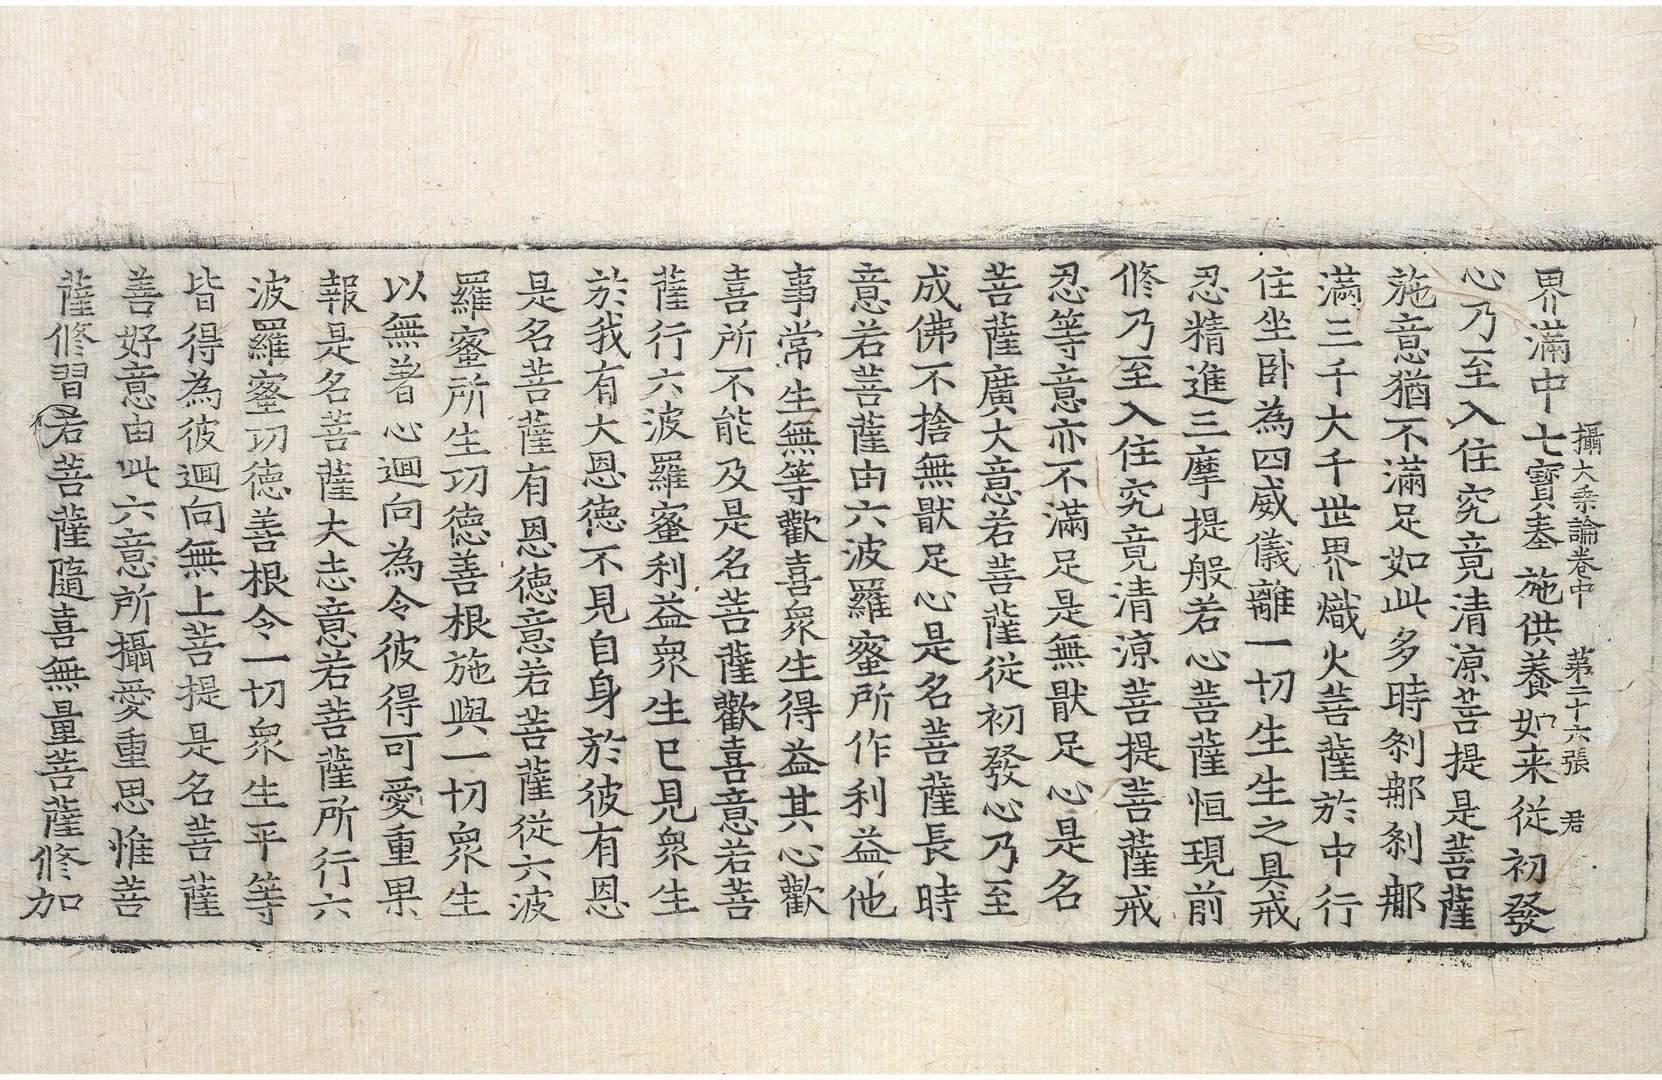 攝大乗論卷中　第二十六張　君
界滿中七寶奉施供養如来従初發
心乃至入住究竟清凉菩提是菩薩
施意猶不滿足如此多時剎那剎那
滿三千大千世界熾火菩薩於中行
住坐卧為四威儀離一切生生之具戒
忍精進三摩提般若心菩薩恒現前
修乃至入住究竟清凉菩提菩薩戒
忍等意亦不滿足是無猒足心是名
菩薩廣大意若菩薩従初發心乃至
成佛不捨無猒足心是名菩薩長時
意若菩薩由六波羅蜜所作利益他
事常生無等歡喜衆生得益其心歡
喜所不能及是名菩薩歡喜意若菩
薩行六波羅蜜利益衆生已見衆生
於我有大恩徳不見自身於彼有恩
是名菩薩有恩徳意若菩薩従六波
羅蜜所生功徳善根施與一切衆生
以無著心迴向為令彼得可愛重果
報是名菩薩大志意若菩薩所行六
波羅蜜功徳善根令一切衆生平等
皆得為彼迴向無上菩提是名菩薩
善好意由此六意所攝愛重思惟菩
薩修習若菩薩隨喜無量菩薩修加